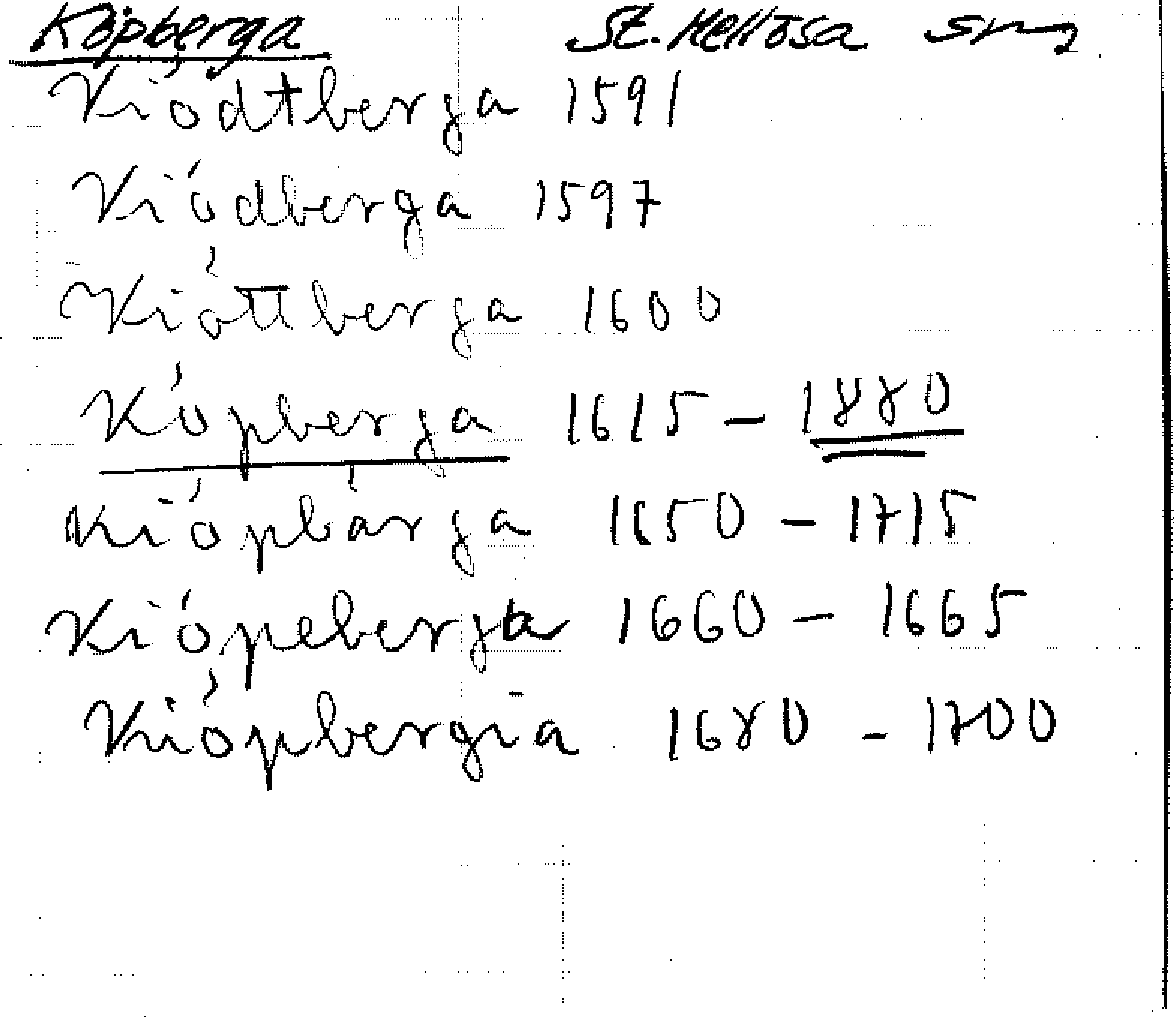 Köpberga St. Mellösa Srm
Kiödtberga 1591
Kiödberga 1597
Kiöttberga 1600
Köpberga 1615 - 1880
Kiópbárga 1650 - 1715
Kiópeberga 1660 - 1665
Kiópbergia 1680 - 1700